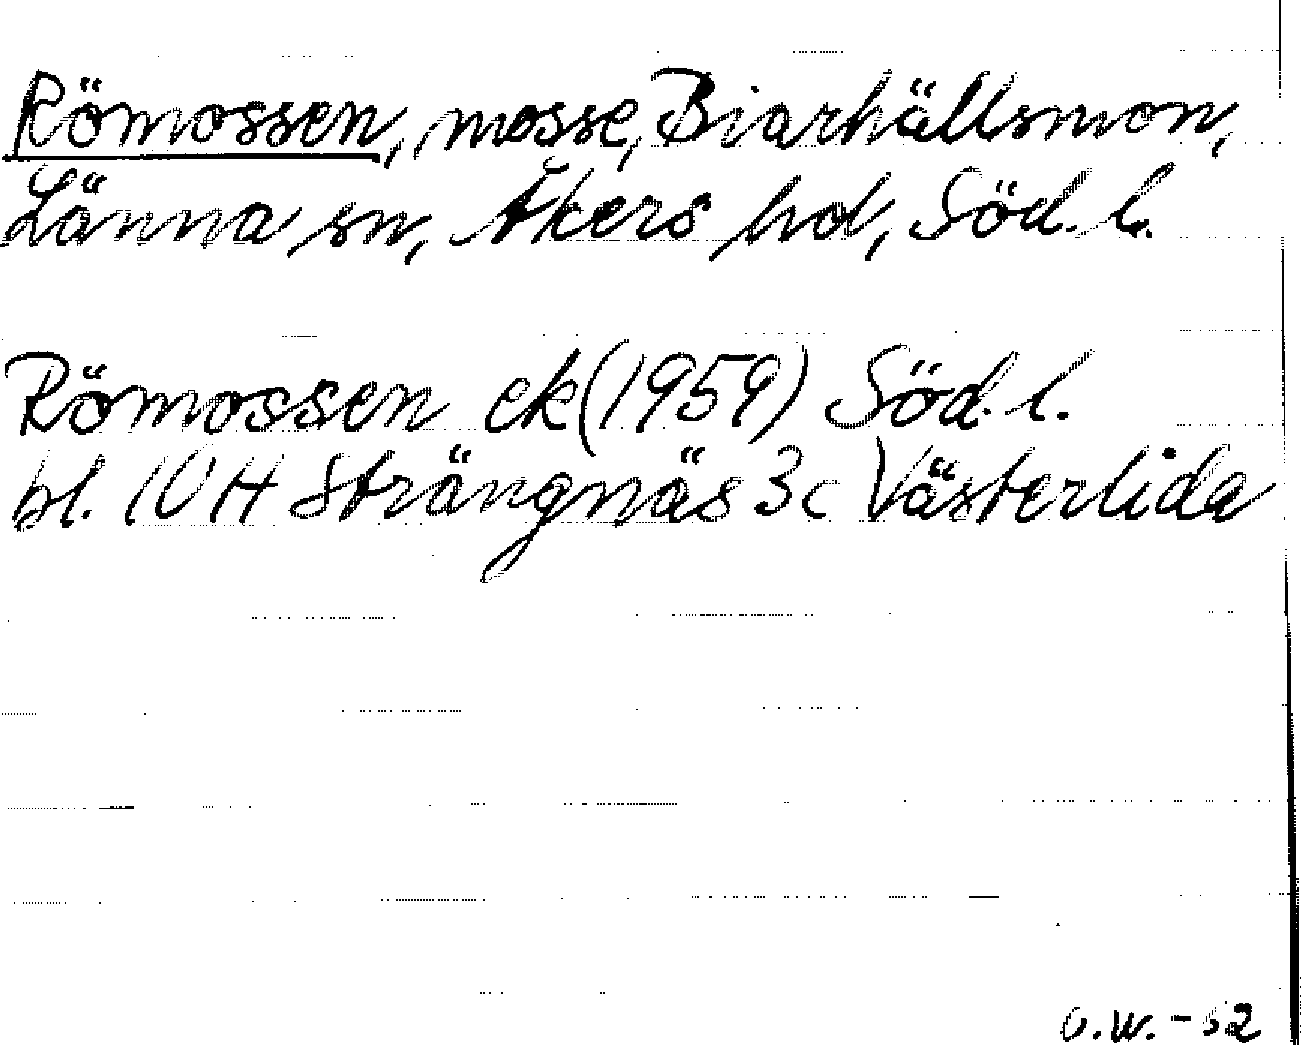 Römossen, mosse, Biarhällsmon,
Länna sn, Åkers hd, Söd. l.
Römossen ek (1959) Söd. l.
bl. 10 H Strängnäs 3c Västerlida